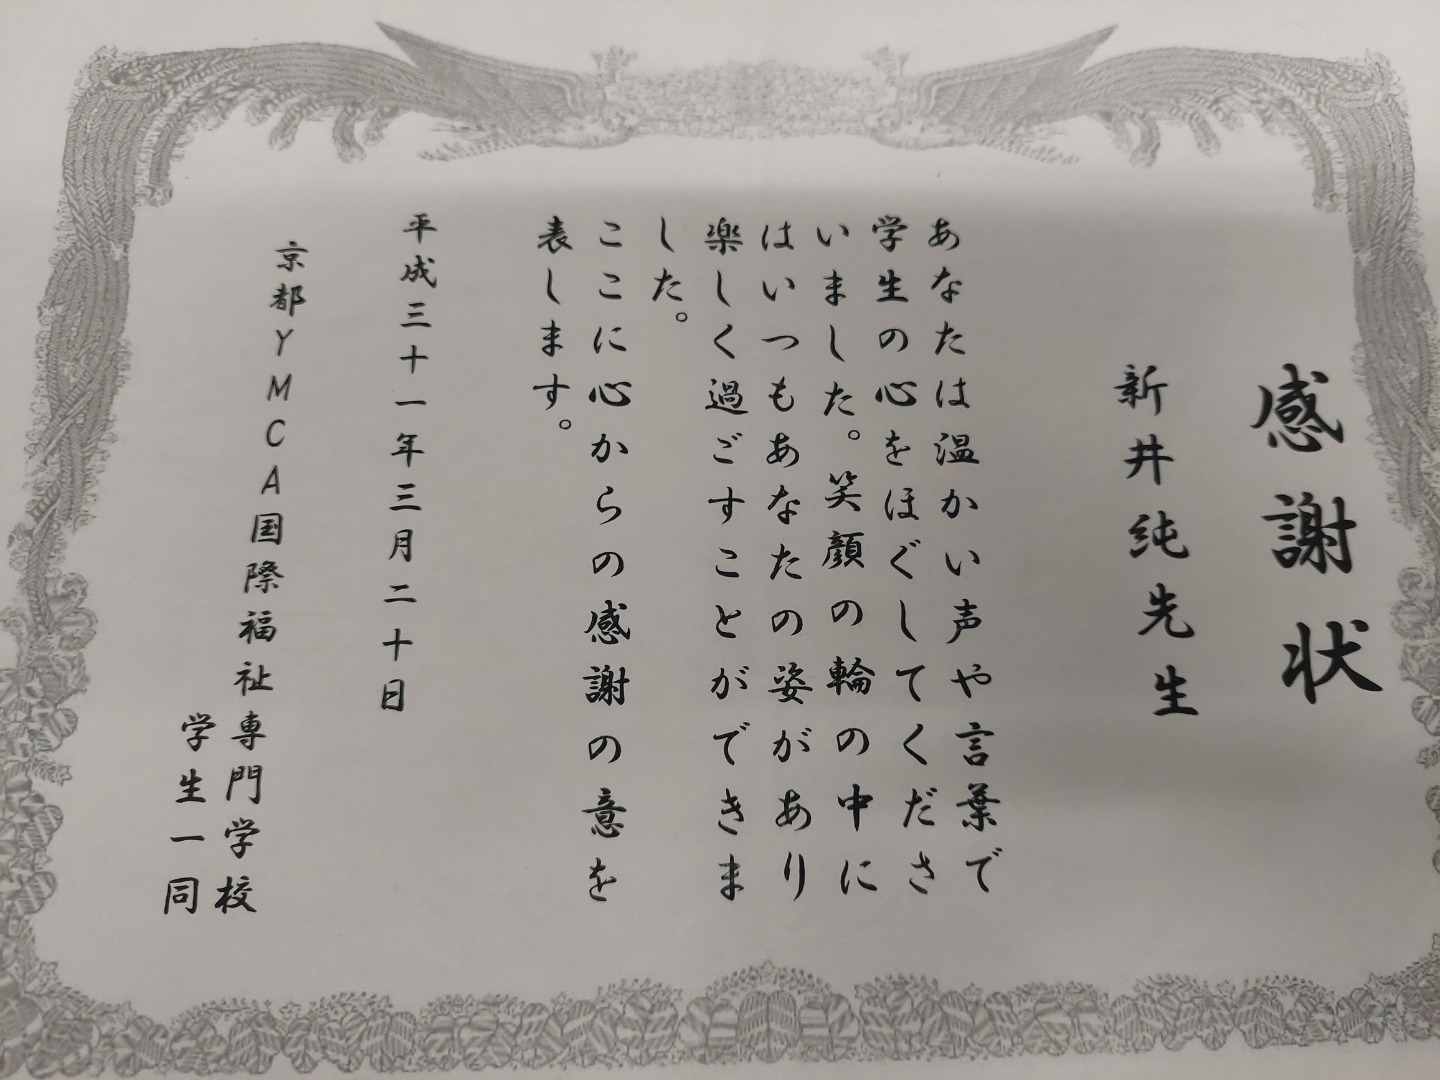 感謝状
新井純先生
あなたは温かい声や言葉で
学生の心をほぐしてくださ
いました。笑顔の輪の中に
はいつもあなたの姿があり
楽しく過ごすことができま
した。
ここに心からの感謝の意を
表します。
平成三十一年三月二十日
京都YMCA国際福祉専門学校
学生一同